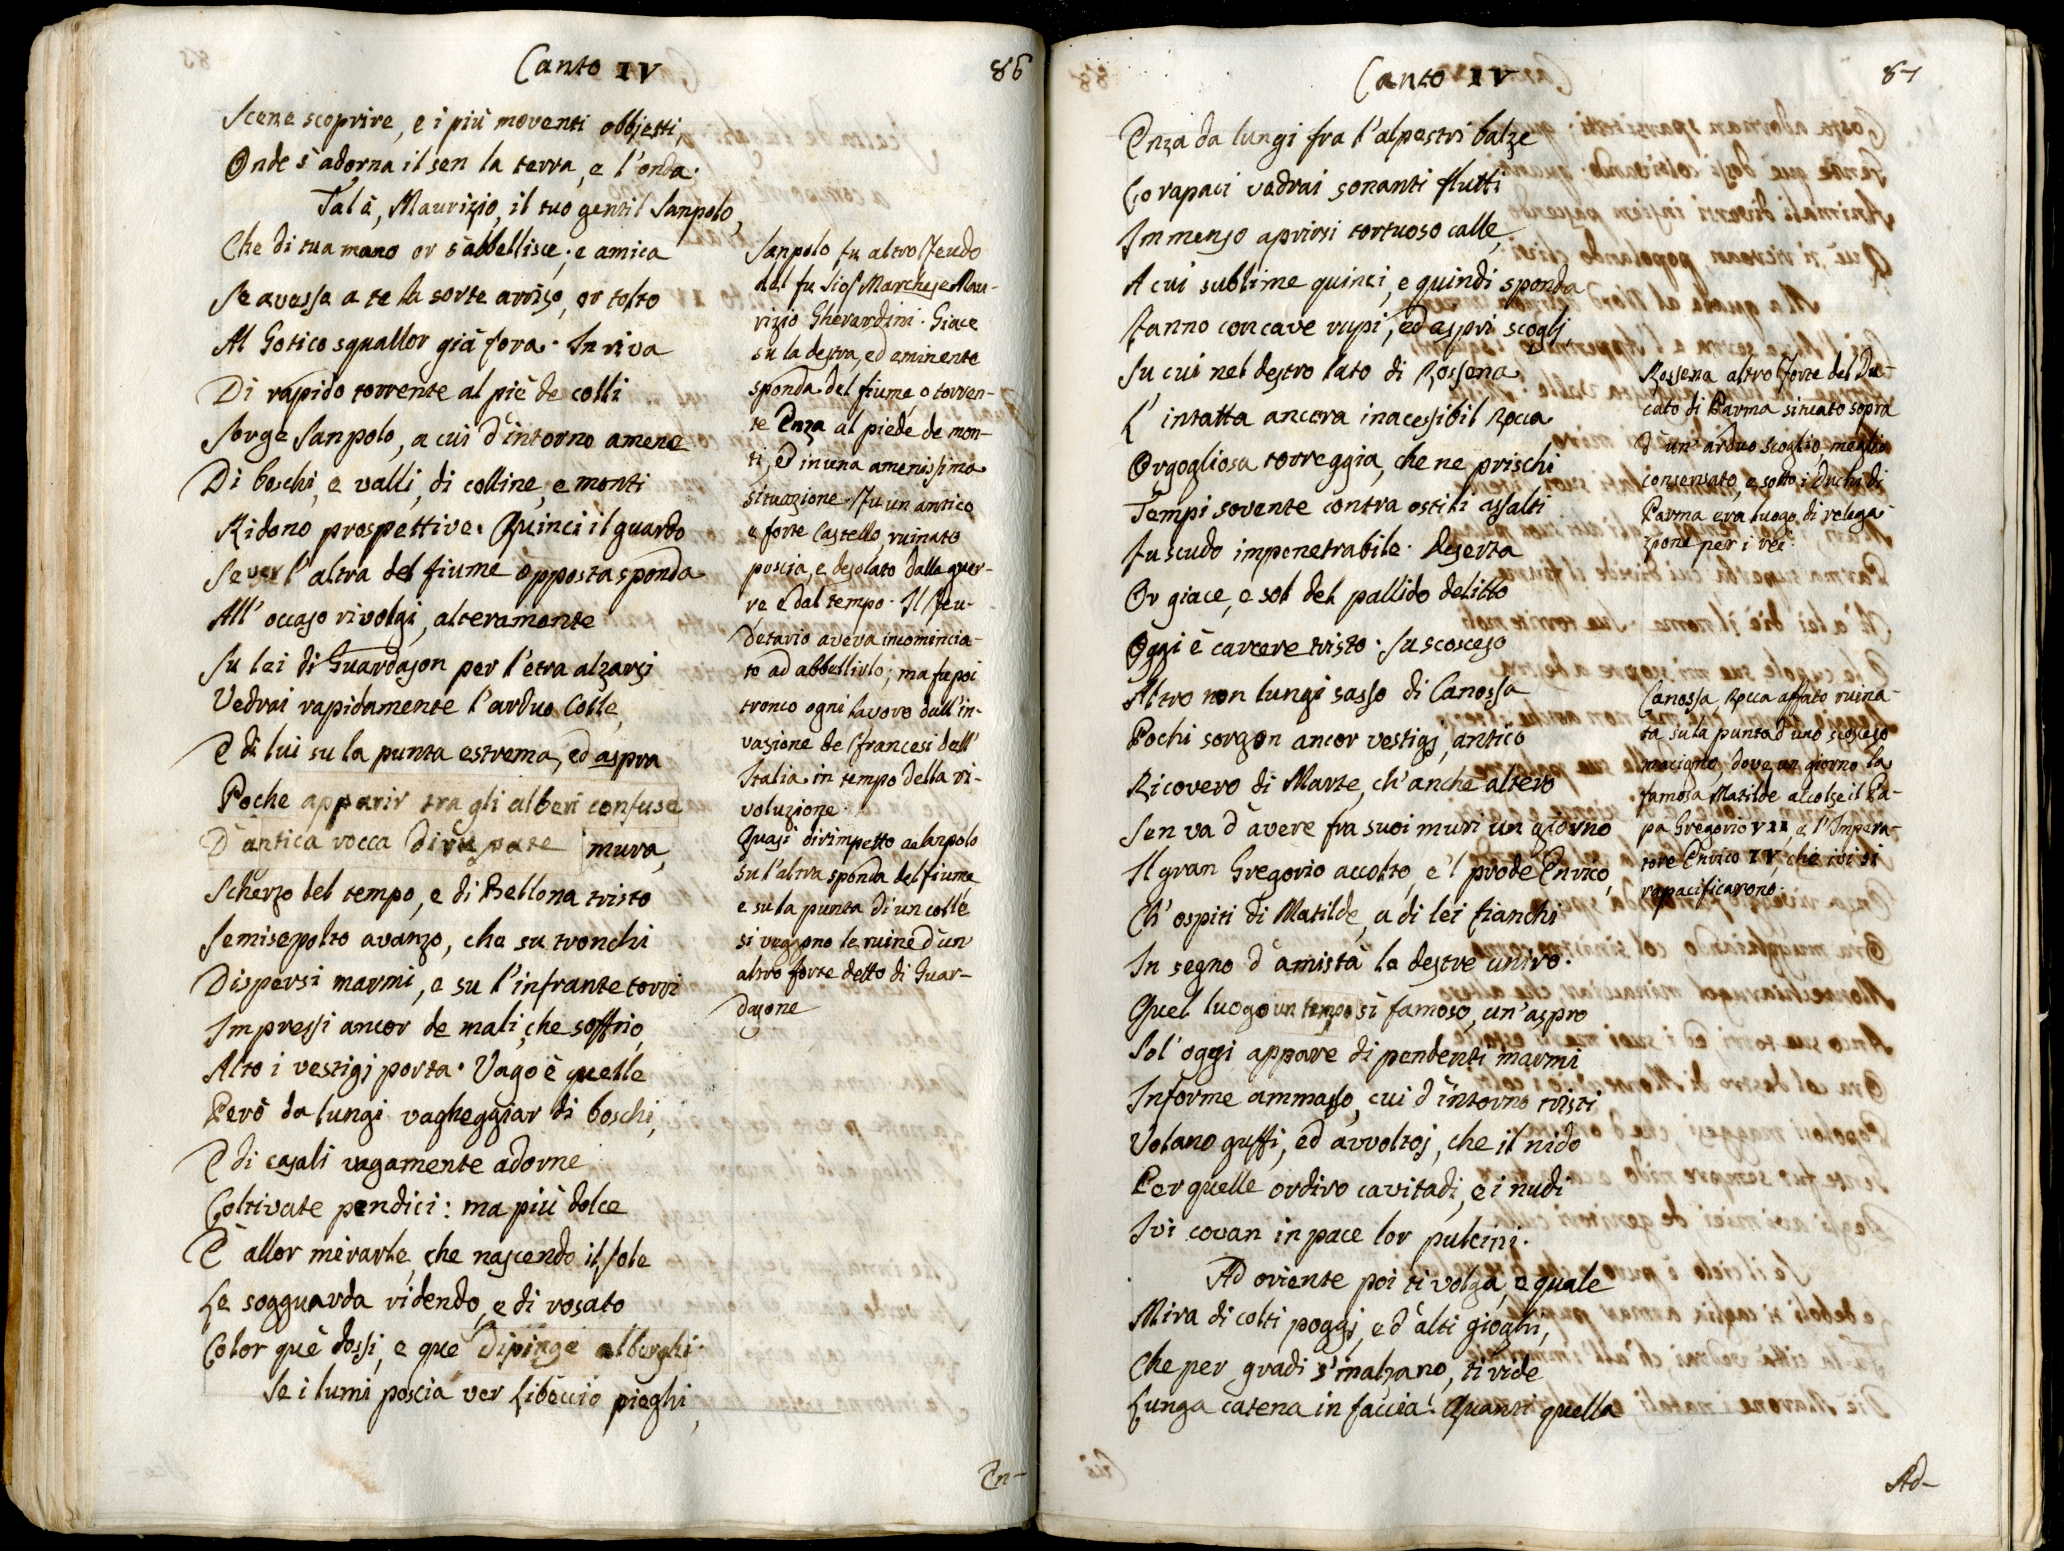 Canto IV
86
Scene scoprire, e i più moventi obbjetti,
Onde s'adorna il sen la terra, e l'onda.
Tal è, Maurizio, il tuo gentil Sanpolo,
Che di tua mano or s'abbellisce; e amica
Se avesse a te la sorte arriso, or tolto
Al Gotico squallor già fora. In riva
Di rapido torrente al piè de colli
Sorge Sanpolo, a cui d'intorno amene
Di boschi, e valli, di colline, e monti
Ridono prospettive. Quinci il guardo
Se ver l'altra del fiume opposta sponda
All'occaso rivolgi, alteramente
Su lei di Guardason per l'etra alzarsi
Vedrai rapidamente l'arduo Colle,
E di lui su la punta estrema, ed aspra
Poche apparir tra gli alberi confuse
D'antica rocca dirupate mura,
Scherzo del tempo, e di Bellona tristo
Semisepolto avanzo, che su tronchi
Dispersi marmi, e su l'infrante torri
Impressi ancor de mali, che soffrio,
Alto i vestigj porta. Vago è quelle
Però da lungi vagheggiar di boschi,
E di casali vagamente adorne
Coltivate pendici: ma più dolce
È allor mirarle, che nascendo il sole
Le sogguarda ridendo, e di rosato
Color què dossi, e què dipinge alberghi.
Se i lumi poscia ver Libeccio pieghi,
En-
Sanpolo fu altro feudo
del fu Sig. Marchese Mau-
rizio Gherardini. Giace
su la destra, ed eminente
sponda del fiume, o torren-
te Enza al piede de mon-
ti, ed in una amenissima
situazione. Fu un antico
e forte Castello, ruinato
poscia, e desolato dalle guer-
re, e dal tempo. Il feu-
detario aveva incomincia-
to ad abbellirlo; ma fu poi
tronco ogni lavoro dall'in-
vasione de francesi dell'
Italia in tempo della ri-
voluzione.
Quasi dirimpetto a Sanpolo
su l'altra sponda del fiume
e su la punta di un colle
si veggono le ruine d'un
altro forte detto di Guar-
dasone
Canto IV
87
Enza da lungi fra l'alpestri balze
Co rapaci vedrai sonanti flutti
Immenso aprirsi tortuoso calle,
A cui sublime quinci, e quindi sponda
Fanno concave rupi, ed aspri scoglj,
Su cui nel destro lato di Rossena
L'intatta ancora inacessibil Rocca
Orgogliosa torreggia, che ne prischi
Tempi sovente contra ostili assalti
Fu scudo impenetrabile. Deserta
Or giace, e sol del pallido delitto
Oggi è carcere tristo. Su scosceso
Altro non lungi sasso di Canossa
Pochi sorgon ancor vestigj, antico
Ricovero di Marte, ch'anche altero
Sen va d'avere fra suoi muri un giorno
Il gran Gregorio accolto, e'l prode Enrico,
Ch'ospiti di Matilde, a di lei fianchi
In segno d'amistà le destre uniro.
Quel luogo un tempo sì famoso, un'aspro
Sol'oggi appare di pendenti marmi
Informe ammasso, cui d'intorno tristi
Volano guffi, ed avvoltoj, che il nido
Per quelle ordiro cavitadi, e i nudi
Ivi covan in pace lor pulcini.
Ad oriente poi ti volga, e quale
Mira di colti poggj, e d'alti gioghi,
Che per gradi s'inalzano, ti ride
Lunga catena in faccia! Quanti quella
Ad-
Rossena altro forte del Du-
cato di Parma situato sopra
d'un arduo scoglio, meglio
conservato, e sotto i Duchi di
Parma era luogo di relega-
zione per i rei.
Canossa, Rocca affato ruina-
ta su la punta d'uno scosceso
macigno, dove un giorno la
famosa Matilde accolse il Pa-
pa Gregorio VII, e l'Impera-
tore Enrico IV, che ivi si
rapacificarono.